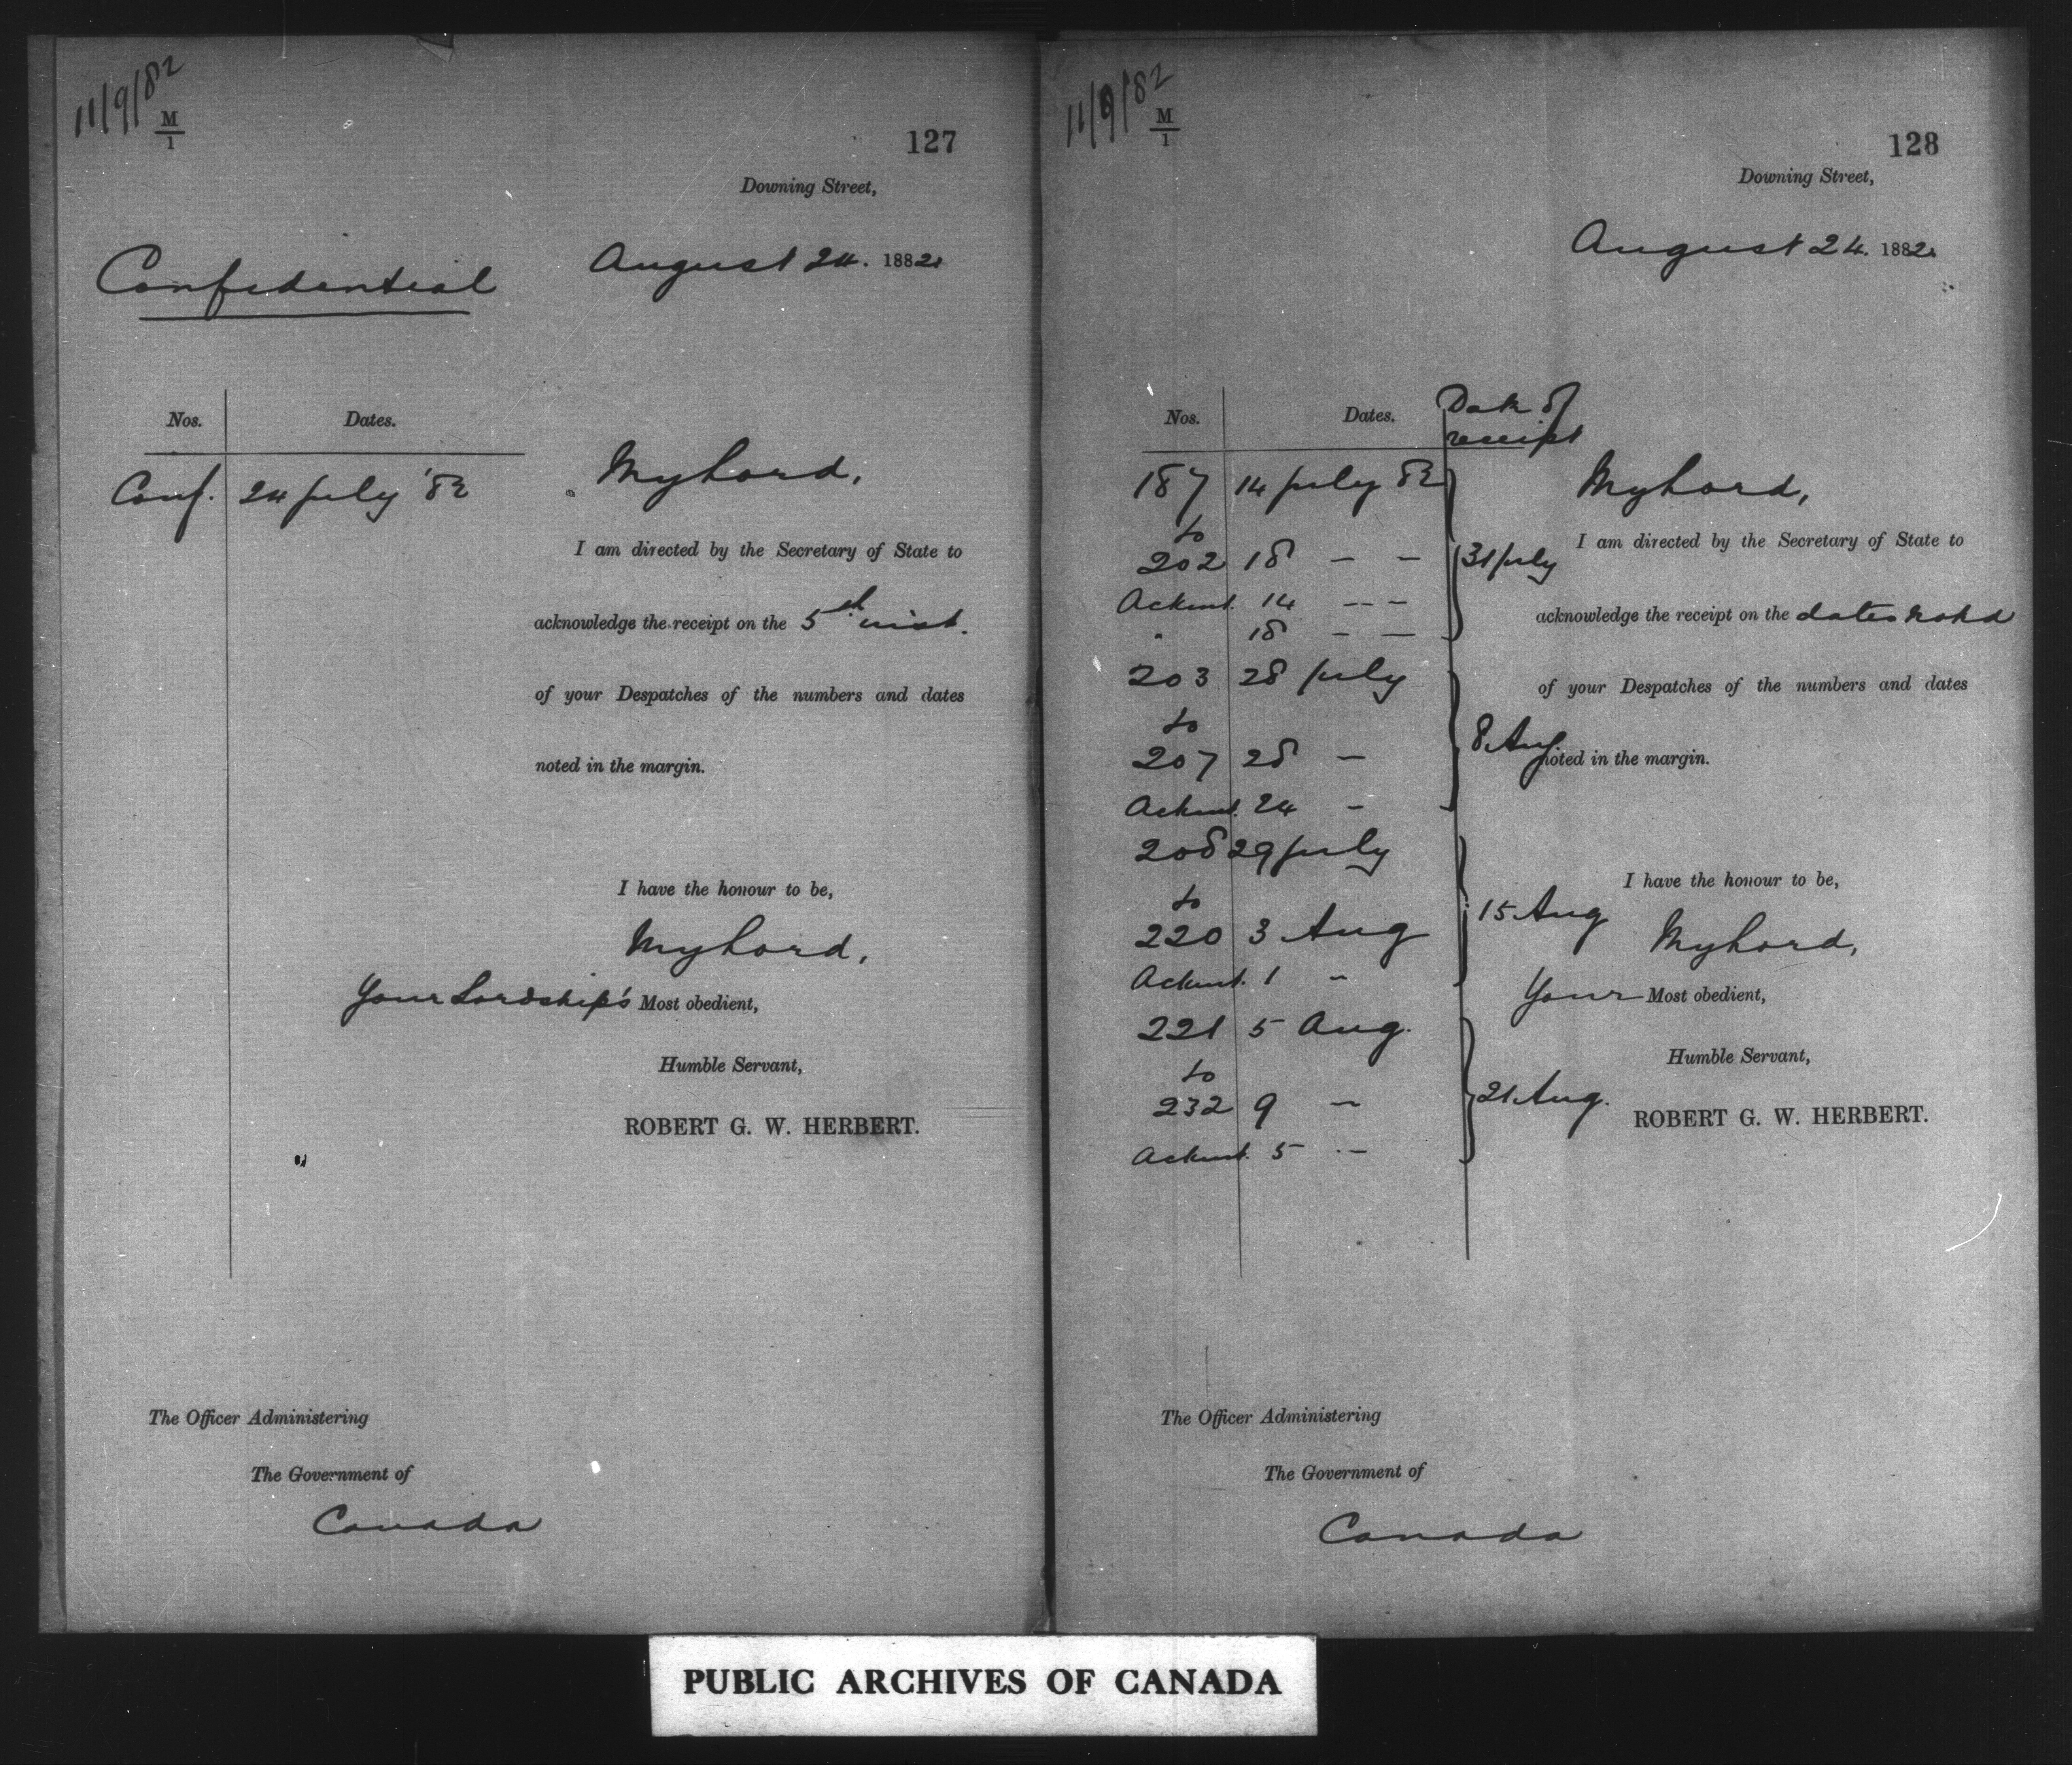 11/9/82
M
1
127
Downing Street,
Confidential
August 24. 1882.
Nos. Dates.
Conf. 24 July '82
My Lord,
I am directed by the Secretary of State to
acknowledge the receipt on the 5th inst.
of your Despatches of the numbers and dates
noted in the margin.
I have the honour to be,
My Lord,
Your Lordship's Most obedient,
Humble Servant,
ROBERT G. W. HERBERT.
The Officer Administering
The Government of
Canada
11/9/82
M
1
128
Downing Street,
August 24. 1882.
Nos. Dates. Date of
receipt
187 14 July 82
to
202 18 — —
31 July
Acknt. 14 — —
" 18 — —
203 28 July
to
207 28 —
8 Aug
Acknt. 24 —
208 29 July
to
220 3 Aug
15 Aug
Acknt. 1 "
221 5 Aug.
to
232 9 —
21 Aug.
Acknt. 5 —
My Lord,
I am directed by the Secretary of State to
acknowledge the receipt on the dates noted
of your Despatches of the numbers and dates
noted in the margin.
I have the honour to be,
My Lord,
Your Most obedient,
Humble Servant,
ROBERT G. W. HERBERT.
The Officer Administering
The Government of
Canada
PUBLIC ARCHIVES OF CANADA